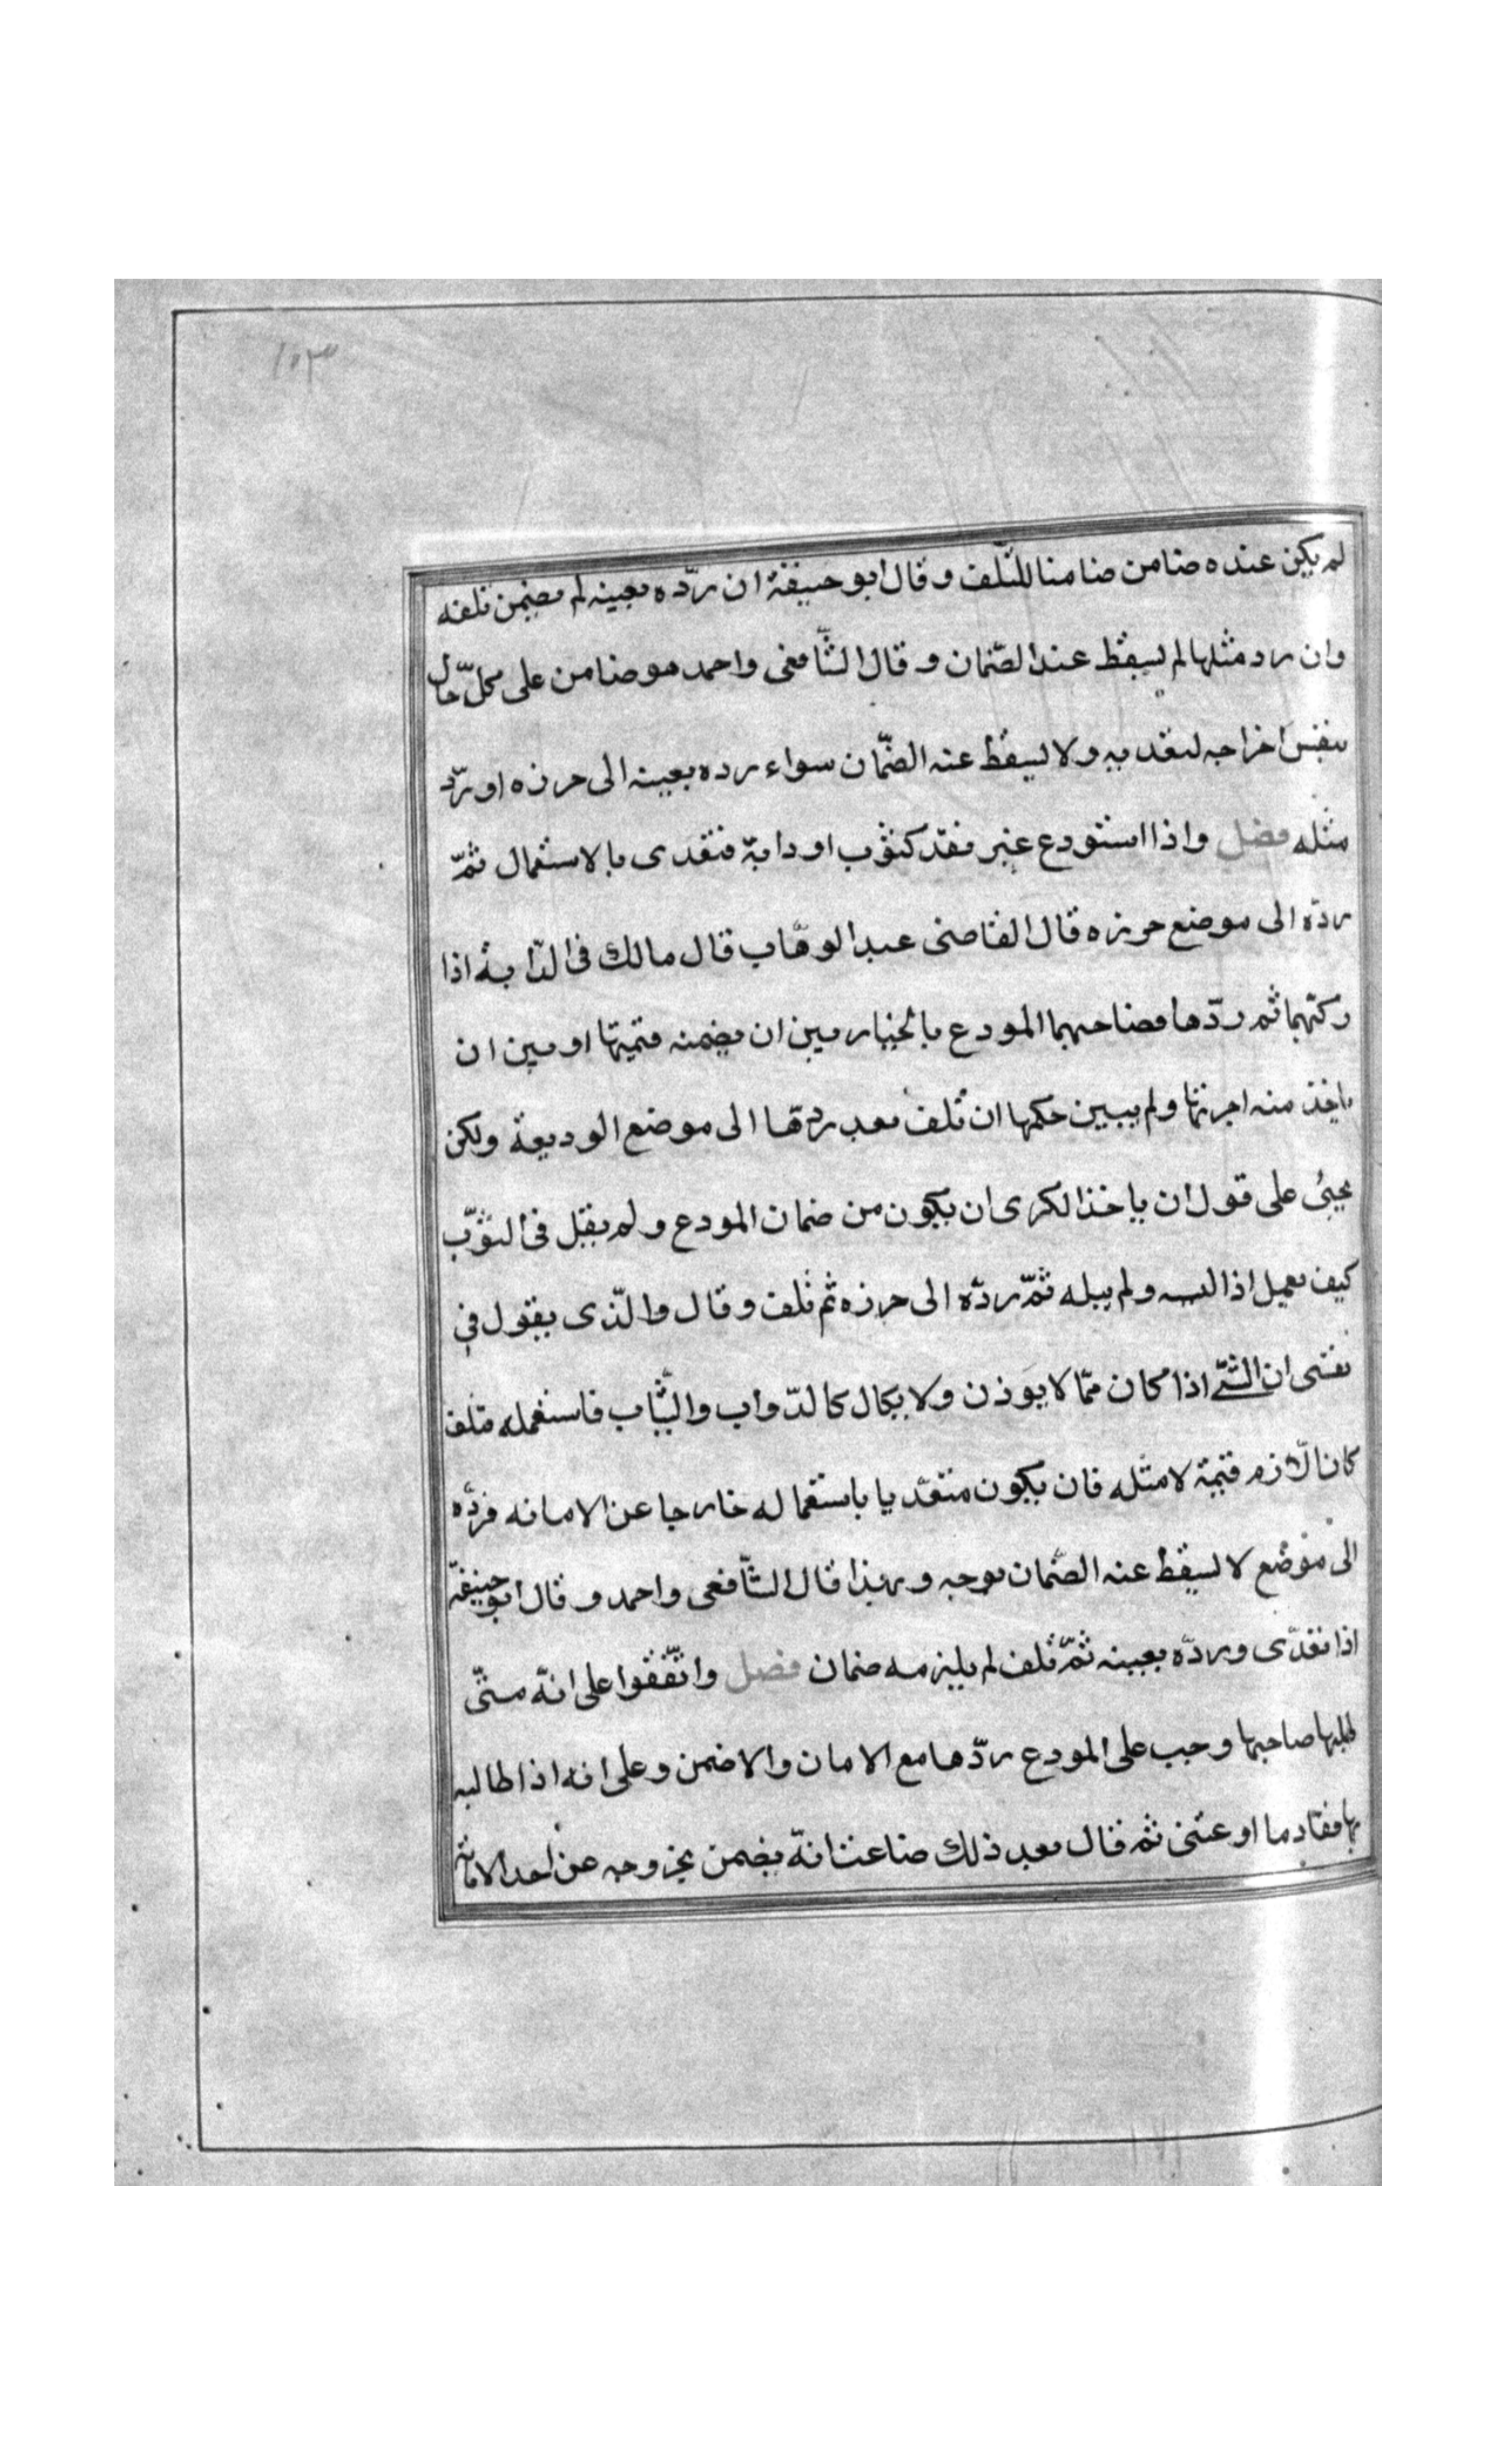 ١٠٣
لم يكن عنده ضامن ضامنا للتلف وقال ابو حنيفة ان ردّه بعينه لم يضمن تلفه
وان رد مثلها لم يسقط عند الضّمان وقال الشّافعى واحمد هو ضامن على كلّ حال
بنفس اخراجه لتعديه ولا يسقط عنه الضّمان سواء رده بعينه الى حرزه او ردّ
مثله فصل واذا استودع غير نقد كثوب او دابّة فتعدى بالاستعمال ثمّ
ردّه الى موضع حرزه قال القاضى عبد الوهّاب قال مالك فى الدّابة اذا
ركبها ثم ردّها فصاحبها المودع بالخيار بين ان يضمنه قيمتها او بين ان
ياخذ منه اجرتها ولم يبين حكمها ان تلف بعد ردّها الى موضع الوديعة ولكن
يجيئ على قول ان ياخذ الكرى ان يكون من ضمان المودع ولم يقل فى الثّوب
كيف يعمل اذا لبسه ولم يبله ثمّ ردّه الى حرزه ثم تلف وقال والّذى يقول فى
نفسى ان الشّئ اذا كان ممّا لا يوزن ولا يكال كالدّواب والثّياب فاستعمله فتلف
كان الّازم قيمة لا مثله فان يكون متعدّيا باستعماله خارجا عن الامانه فردّه
الى موضع لا يسقط عنه الضّمان بوجه وبهذا قال الشّافعى واحمد وقال ابو حنيفة
اذا تعدّى وردّه بعينه ثمّ تلف لم يلزمه ضمان فصل واتّفقوا على انّه متى
طلبها صاحبها وجب على المودع ردّها مع الامان والا ضمن وعلى انه اذا طالبه
بها فقال ما اودعتنى ثم قال بعد ذلك ضاعت انّه يضمن بخروجه عن احد الامانة